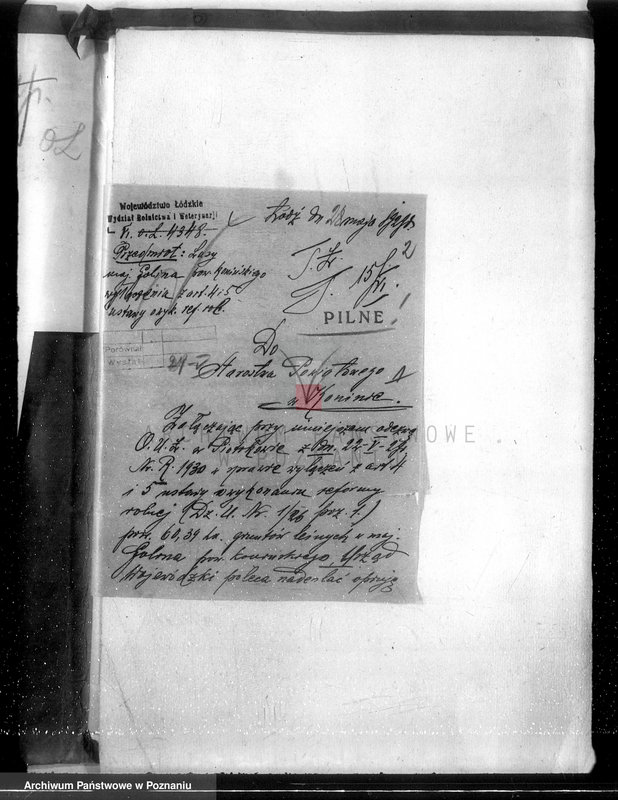 Województwo Łódzkie
Wydział Rolnictwa i Weterynarji
L. 4348.-
Przedmiot: Lasy
maj. Golina pow. konińskiego
z art. 4 i 5
ustawy o wyk. ref. rol.
Łódź dn 28 maja
15/VI.
PILNE
Porównał
Wysłał
Do
Starostwa Powiatowego
w Koninie.
Załączając przy niniejszem odezwę
O.U.Z. w Piotrkowie z dn. 22-V-
Nr. R. 1930 w sprawie wyłączeń z art 4
i 5 ustawy o wykonaniu reformy
rolnej (Dz. U. Nr. 1/26 poz. 1.)
pow. 60,39 ha. gruntów leśnych w maj.
Golina pow. konińskiego Urząd
Wojewódzki poleca nadesłać opinję
Archiwum Państwowe w Poznaniu